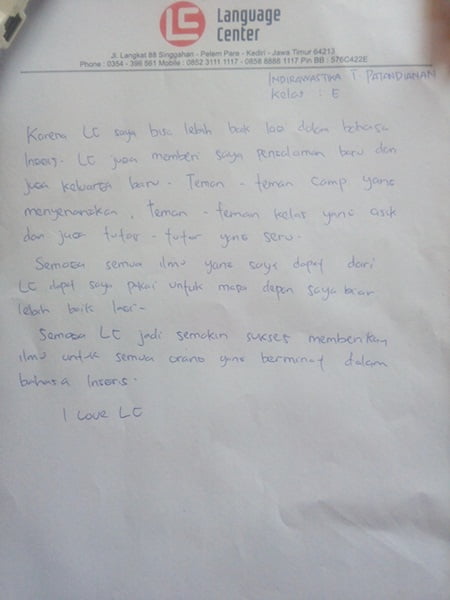 LC
Language
Center
Jl. Langkat 88 Singgahan - Pelem Pare - Kediri - Jawa Timur 64213
Phone : 0354 - 396 561 Mobile : 0852 3111 1117 - 0858 8888 1117 Pin BB : 576C422E
INDIRAWASTIKA T. PATANDIANAN
Kelas : E
Karena LC saya bisa lebih baik lagi dalam bahasa
Inggris. LC juga memberi saya pengalaman baru dan
juga keluarga baru. Teman - teman camp yang
menyenangkan, teman - teman kelas yang asik
dan juga tutor - tutor yang seru.
Semoga semua ilmu yang saya dapat dari
LC dapat saya pakai untuk masa depan saya biar
lebih baik lagi.
Semoga LC jadi semakin sukses memberikan
ilmu untuk semua orang yang berminat dalam
bahasa Inggris.
I Love LC